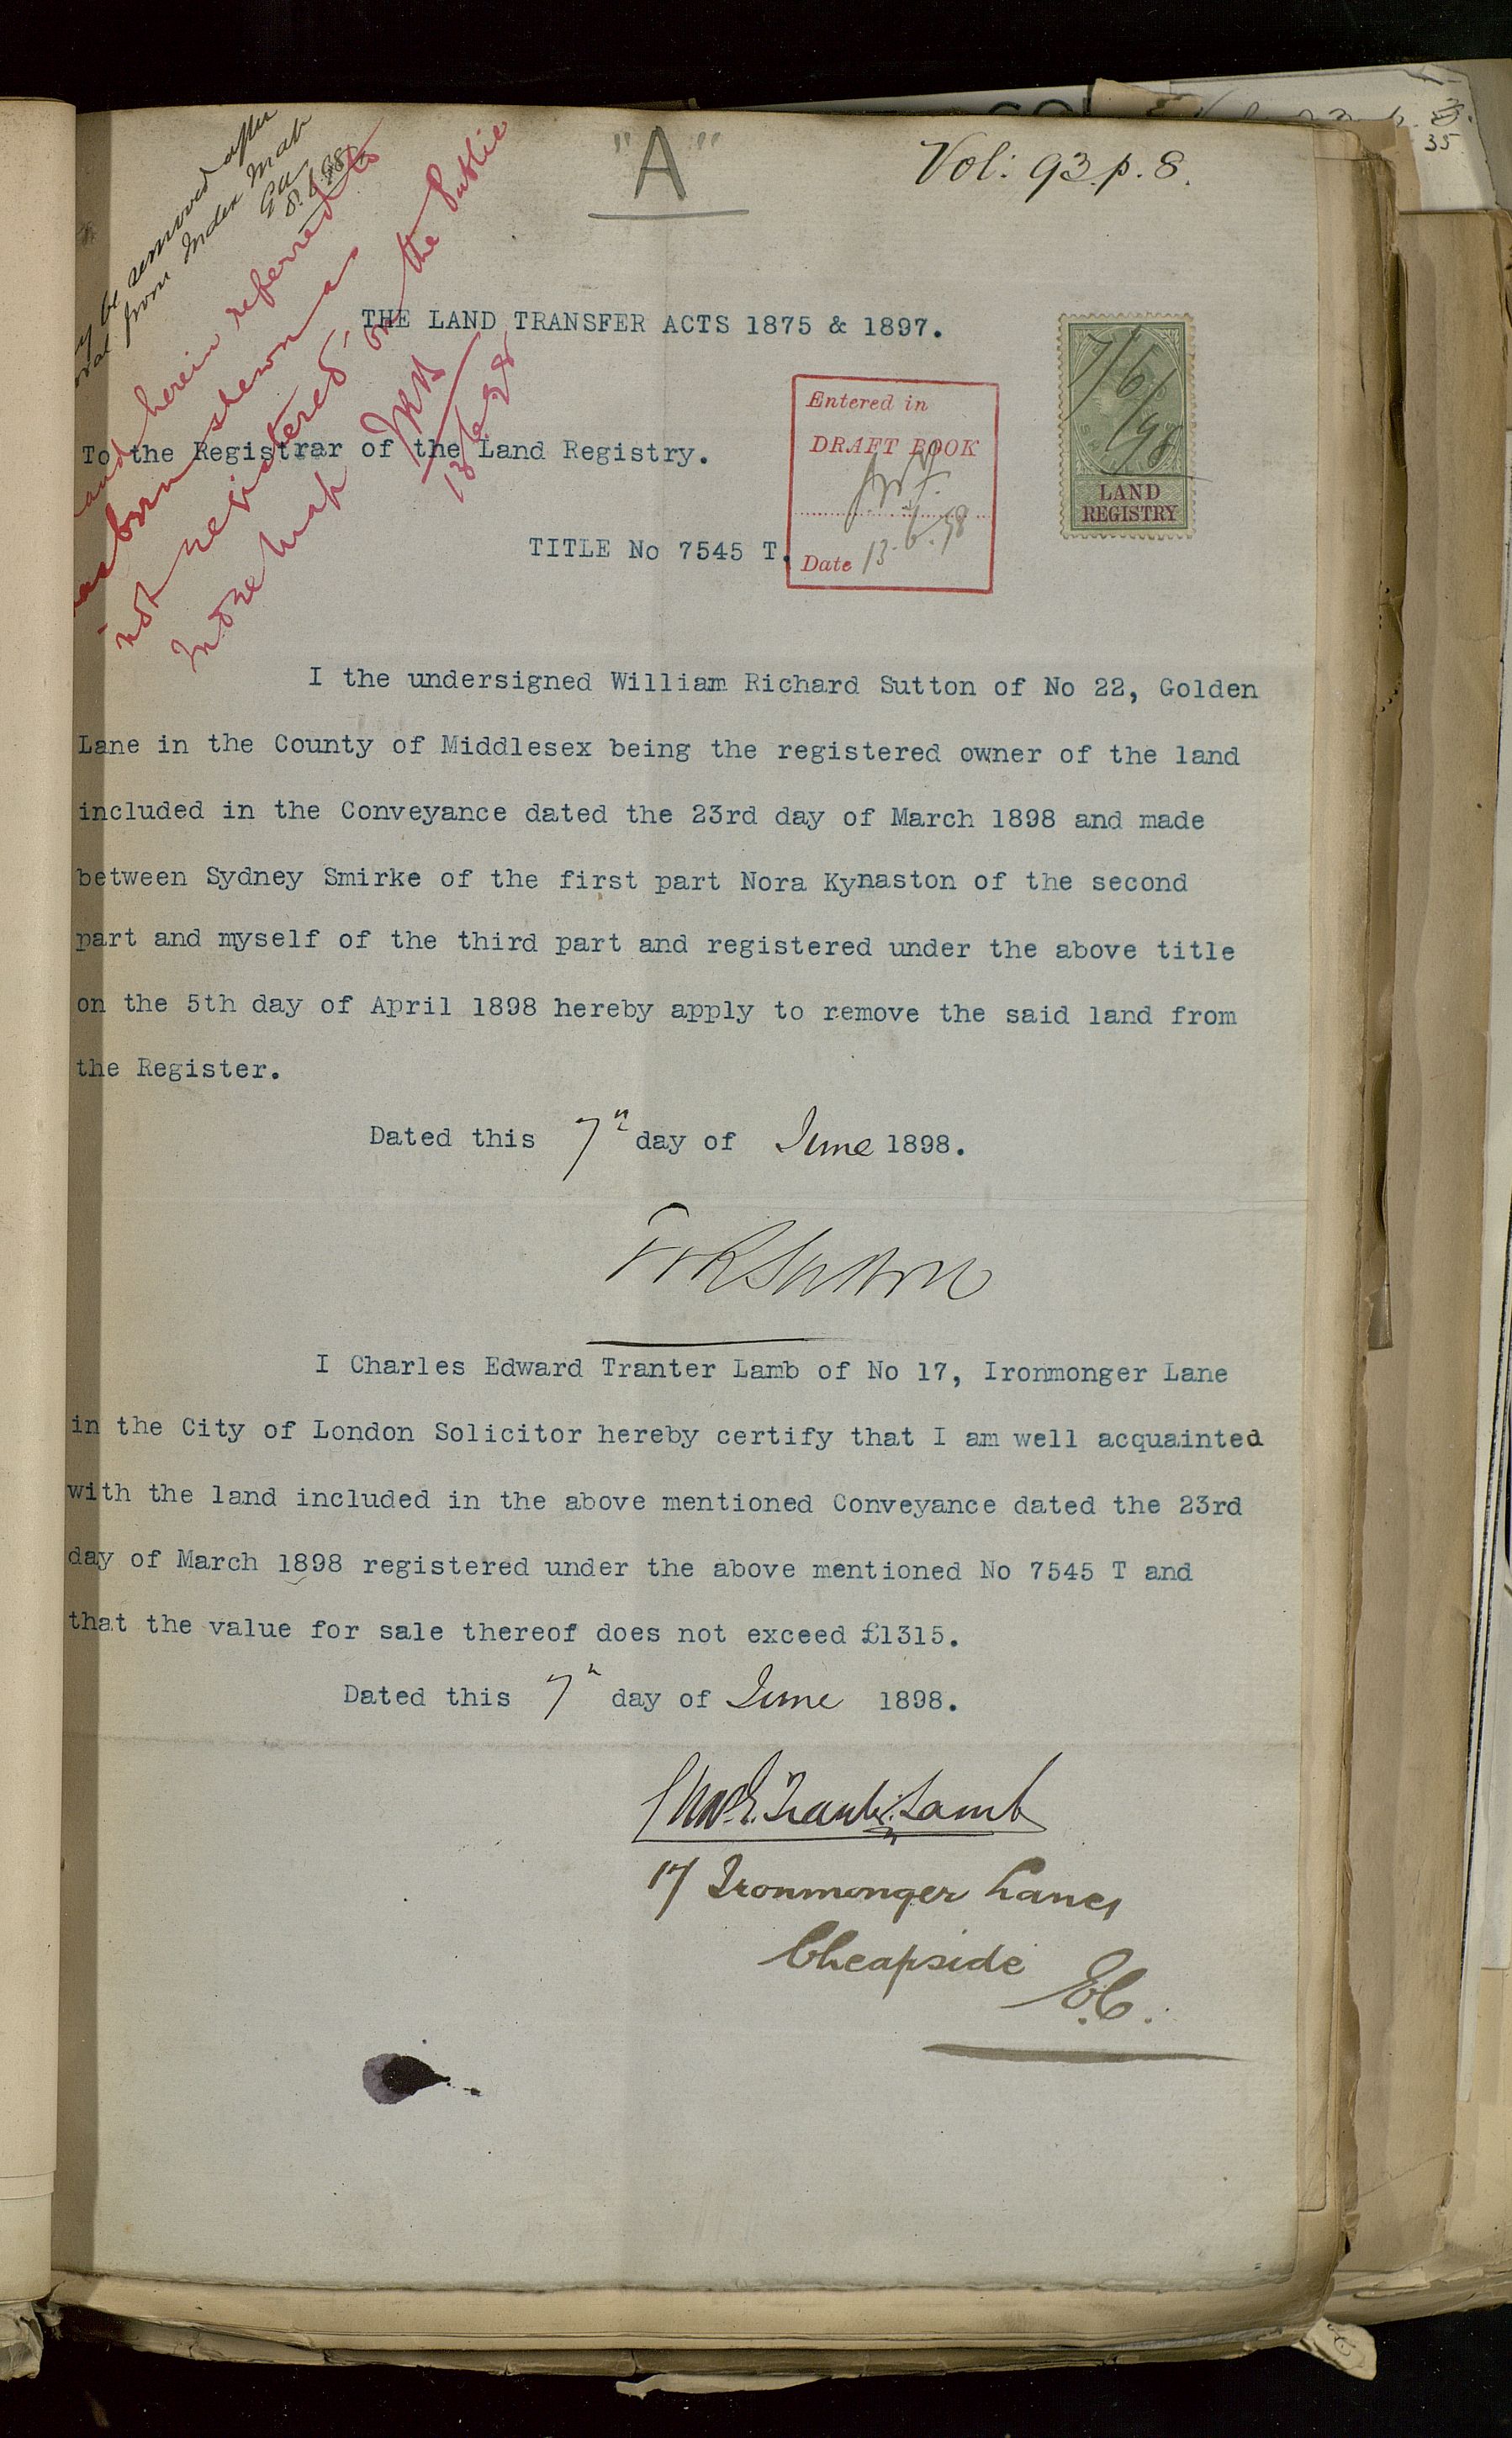 "A"
Vol: 93. p. 8.
35
be removed after
from Index Map
8.6.98
land herein referred to
has been shewn as
'not registered' on the Public
Index Map
13/6/98
THE LAND TRANSFER ACTS 1875 & 1897.
7/6/98
LAND
REGISTRY
Entered in
DRAFT BOOK
Date 13.6.98
To the Registrar of the Land Registry.
TITLE No 7545 T.
I the undersigned William Richard Sutton of No 22, Golden
Lane in the County of Middlesex being the registered owner of the land
included in the Conveyance dated the 23rd day of March 1898 and made
between Sydney Smirke of the first part Nora Kynaston of the second
part and myself of the third part and registered under the above title
on the 5th day of April 1898 hereby apply to remove the said land from
the Register.
Dated this 7th day of June 1898.
WRSutton
I Charles Edward Tranter Lamb of No 17, Ironmonger Lane
in the City of London Solicitor hereby certify that I am well acquainted
with the land included in the above mentioned Conveyance dated the 23rd
day of March 1898 registered under the above mentioned No 7545 T and
that the value for sale thereof does not exceed £1315.
Dated this 7th day of June 1898.
Chas. E. Tranter Lamb
17 Ironmonger Lane
Cheapside
E.C.